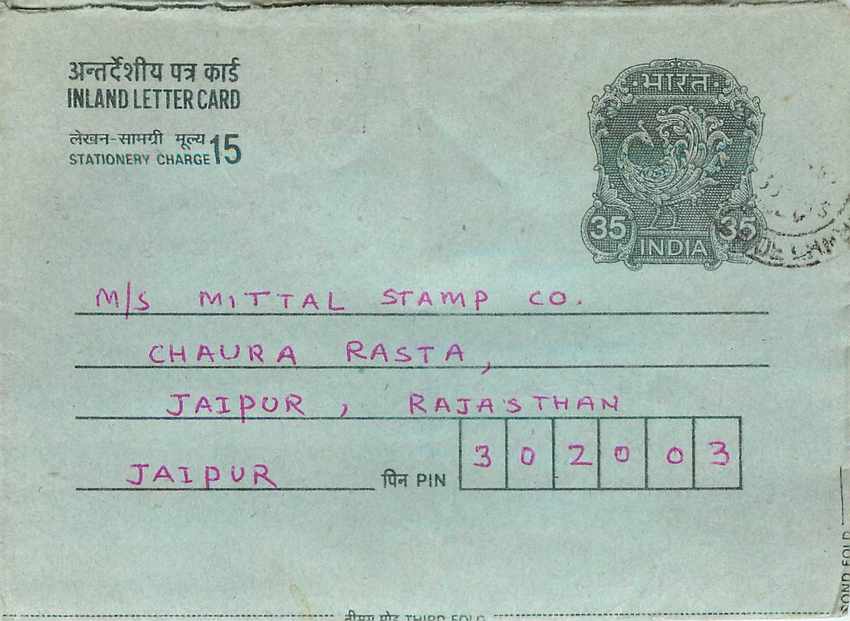 अन्तर्देशीय पत्र कार्ड
INLAND LETTER CARD
लेखन-सामग्री मूल्य
STATIONERY CHARGE 15
भारत
35 35
INDIA
M/S MITTAL STAMP CO.
CHAURA RASTA,
JAIPUR, RAJASTHAN
JAIPUR पिन PIN 3 0 2 0 0 3
तीसरा मोड़ THIRD FOLD
SECOND FOLD